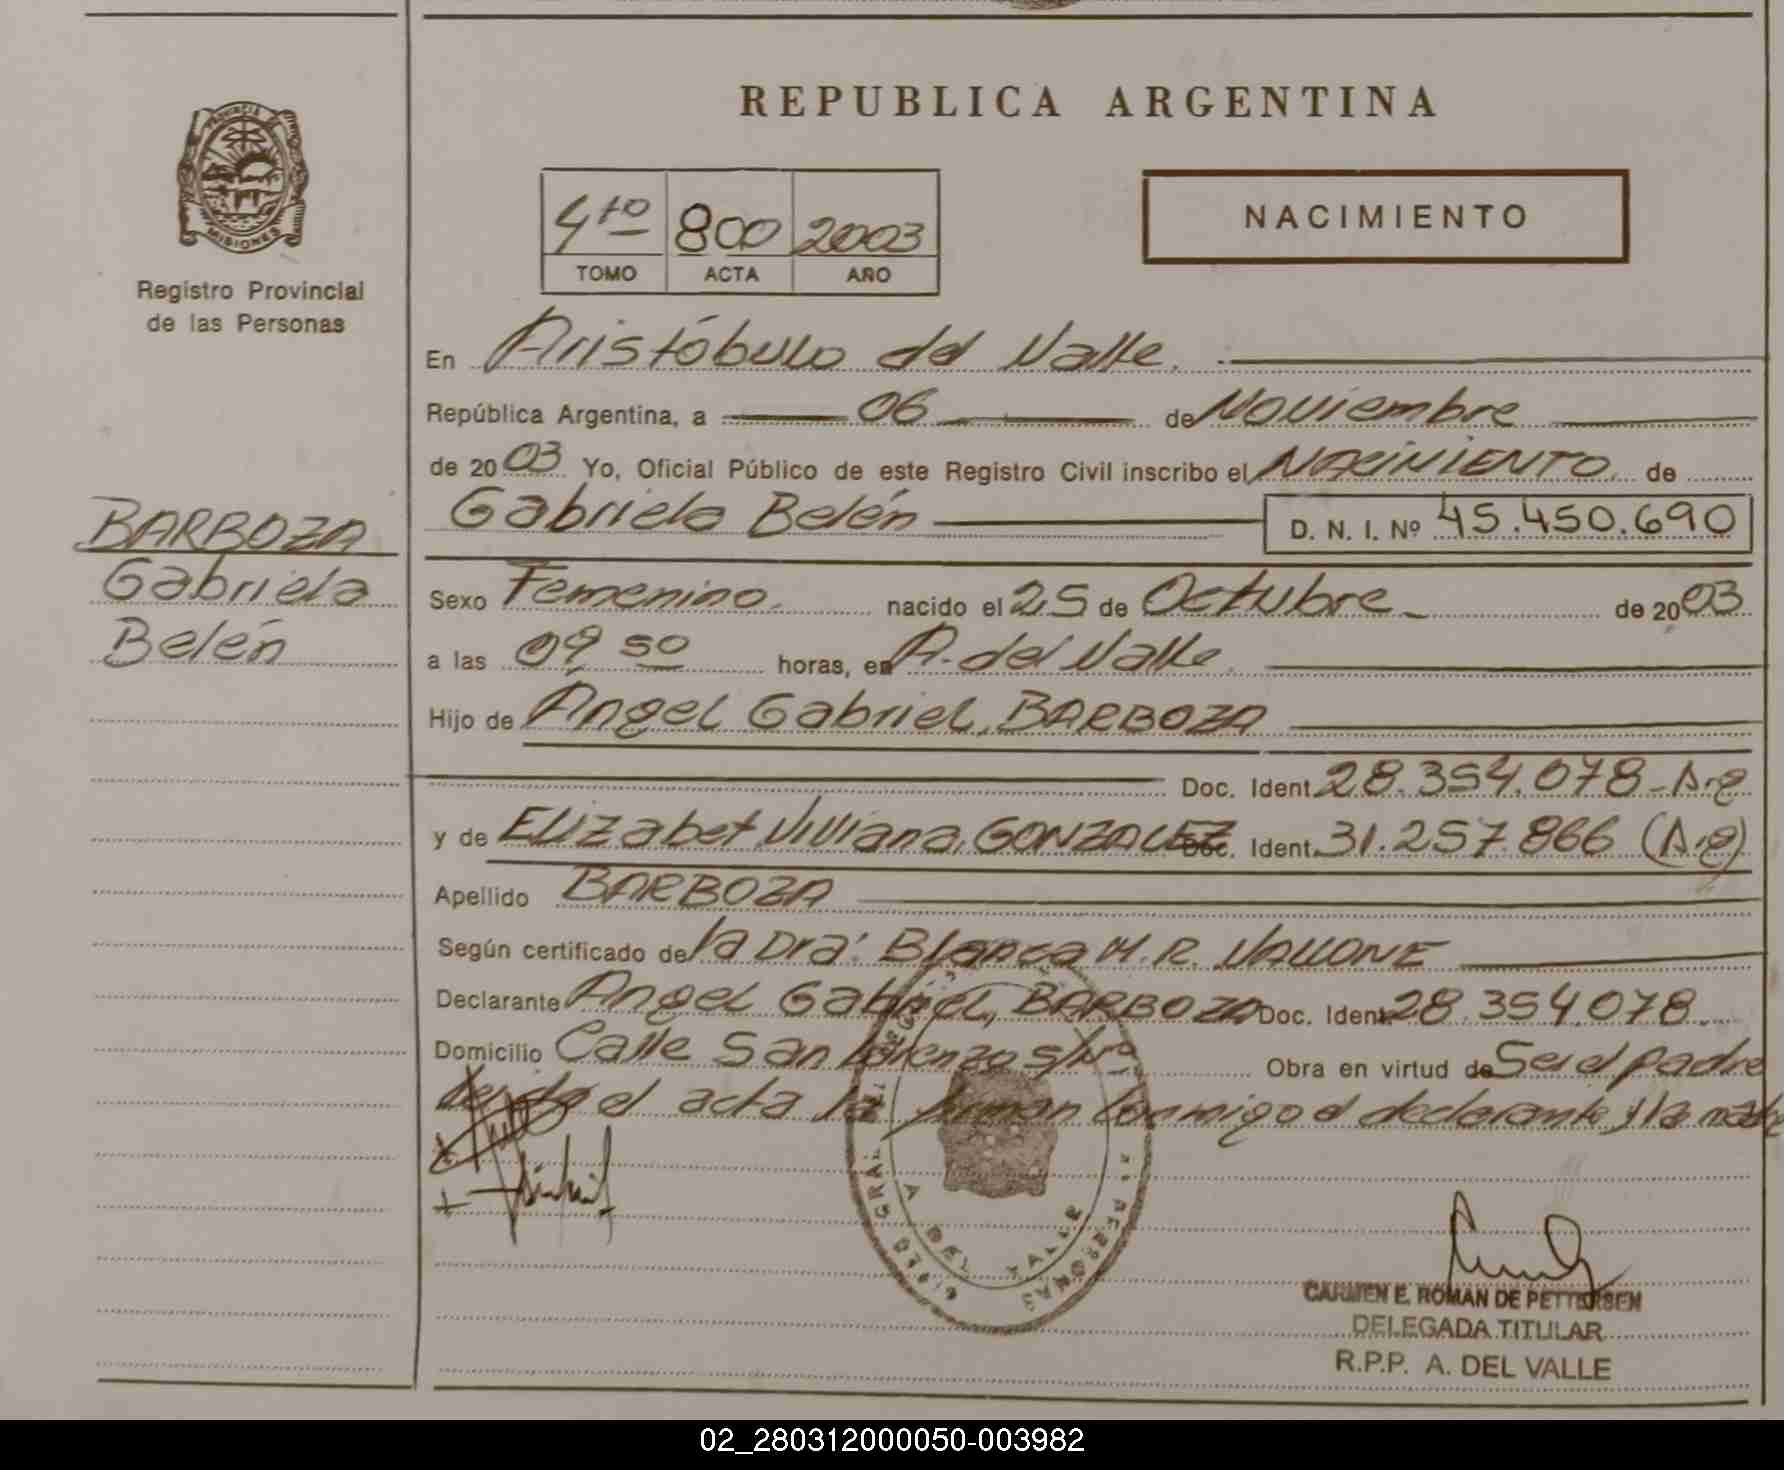 REPUBLICA ARGENTINA
PROVINCIA DE MISIONES
Registro Provincial
de las Personas
4to 800 2003
TOMO ACTA AÑO
NACIMIENTO
En Aristóbulo del Valle.
República Argentina, a 06 de Noviembre
de 2003 Yo, Oficial Público de este Registro Civil inscribo el NACIMIENTO de
BARBOZA
Gabriela
Belén
Gabriela Belén D. N. I. Nº 45.450.690
Sexo Femenino. nacido el 25 de Octubre de 2003
a las 09 50 horas, en A. del Valle.
Hijo de Angel Gabriel, BARBOZA
Doc. Ident. 28.354.078 - Arg
y de Elizabet Viviana, GONZALEZ Doc. Ident. 31.257.866 (Arg)
Apellido BARBOZA
Según certificado de la Dra. Blanca M. R. VALLONE
Declarante Angel Gabriel, BARBOZA Doc. Ident. 28.354.078
Domicilio Calle San Lorenzo s/Nro Obra en virtud de Ser el padre
el acta la firman conmigo el declarante y la madre
A. DEL VALLE
CARMEN E. ROMAN DE PETTERSEN
DELEGADA TITULAR
R.P.P. A. DEL VALLE
02_280312000050-003982